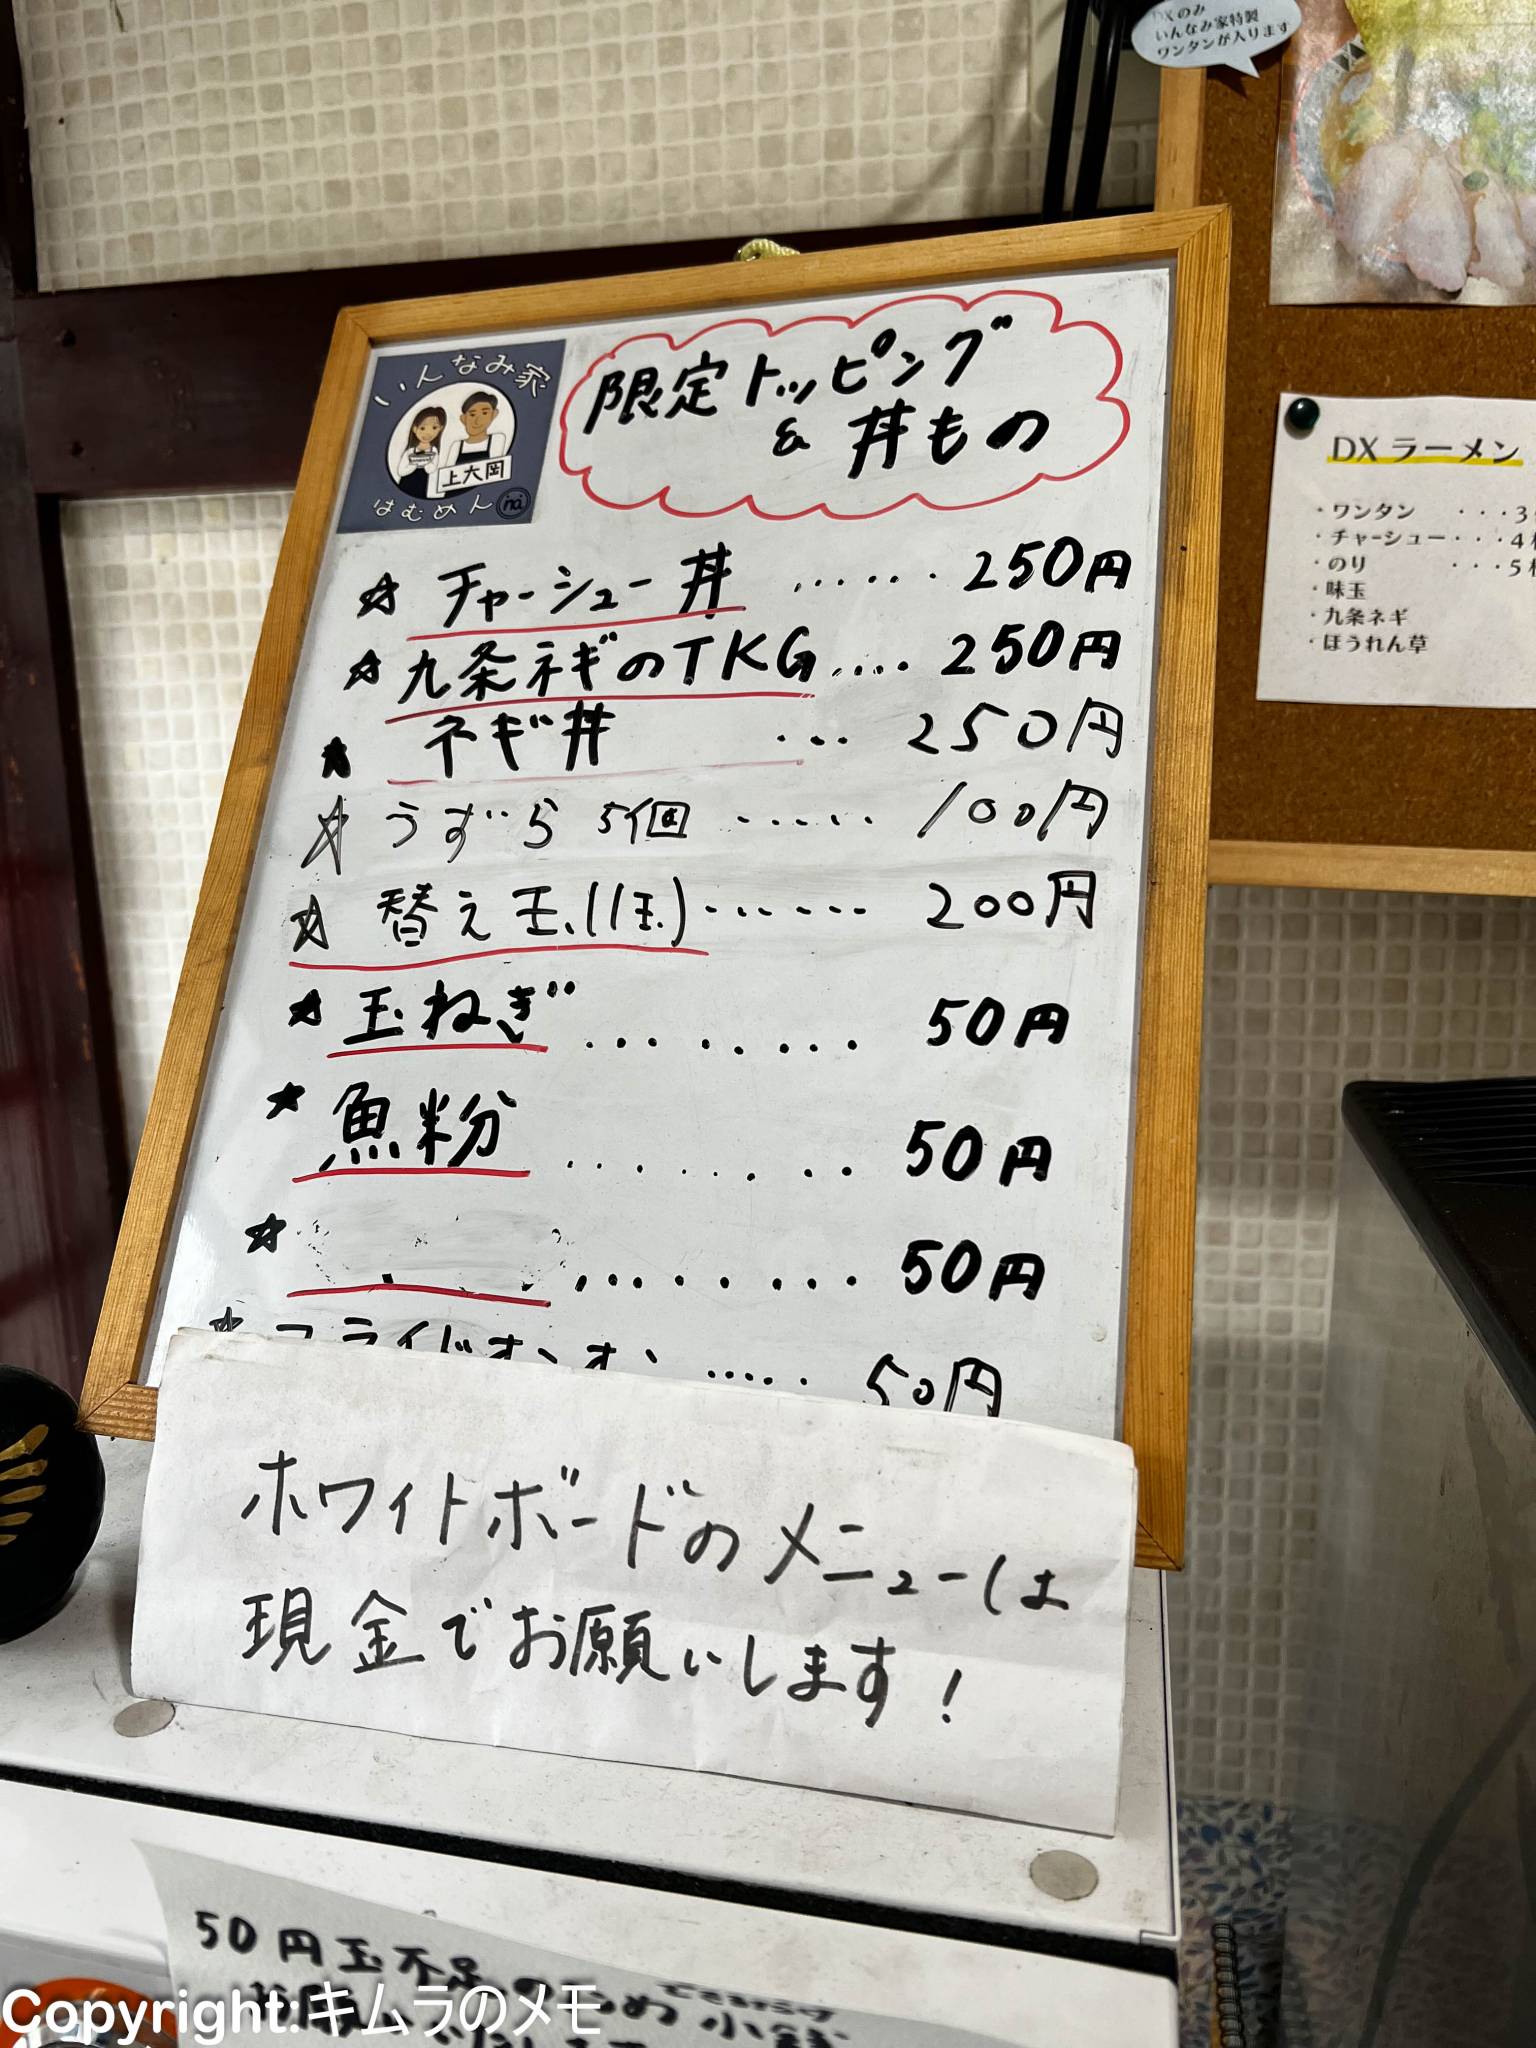 DXのみ
いんなみ家特製
ワンタンが入ります
いんなみ家
上大岡
はむめん
限定トッピング
& 丼もの
☆ チャーシュー丼 ...... 250円
☆ 九条ネギのTKG .... 250円
★ ネギ丼 ... 250円
☆ うずら 5個 ...... 100円
☆ 替え玉(1玉) ...... 200円
★ 玉ねぎ ........ 50円
★ 魚粉 ........ 50円
☆ ......... 50円
☆ フライドオニオン ..... 50円
ホワイトボードのメニューは
現金でお願いします!
DX ラーメン
・ワンタン ・・・3
・チャーシュー・・・4枚
・のり ・・・5枚
・味玉
・九条ネギ
・ほうれん草
50円玉不足のため
Copyright:キムラのメモ